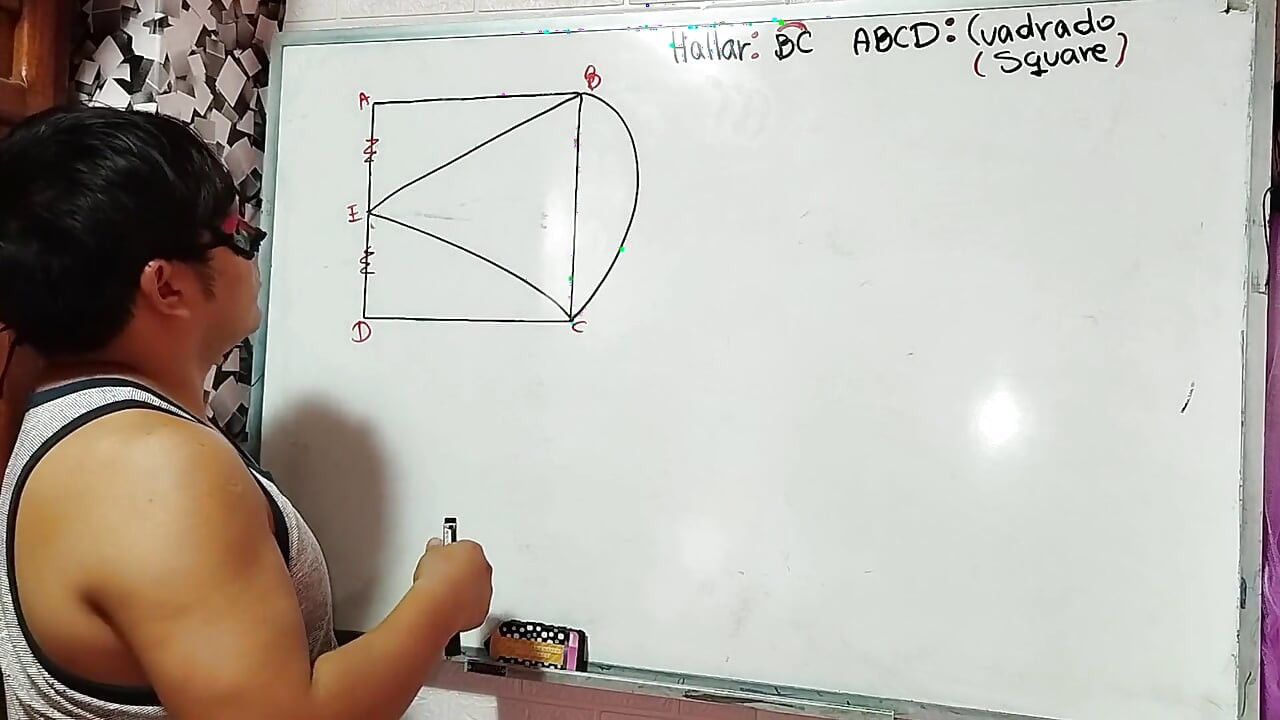 Hallar: BC ABCD: Cuadrado
(Square)
B
A
E
D
C